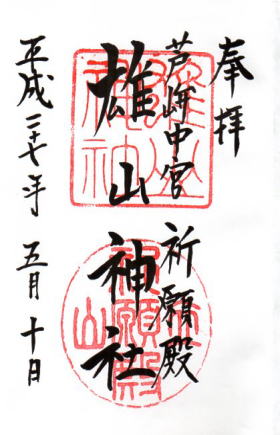 奉拝
芦峅中宮 祈願殿
雄山神社
平成二十七年 五月十日